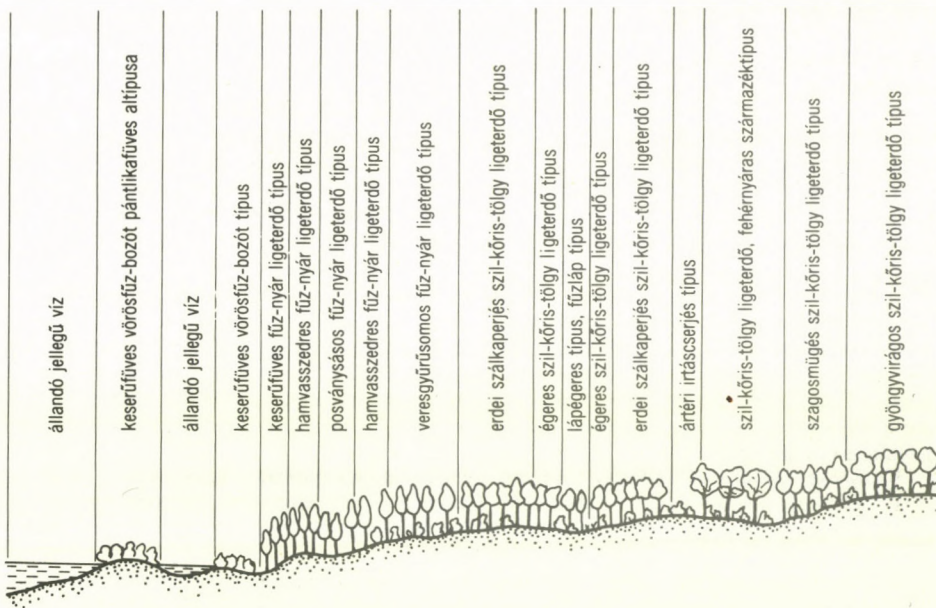 állandó jellegű víz
keserűfüves vörösfűz-bozót pántlikafüves altípusa
állandó jellegű víz
keserűfüves vörösfűz-bozót típus
keserűfüves fűz-nyár ligeterdő típus
hamvasszedres fűz-nyár ligeterdő típus
posványsásos fűz-nyár ligeterdő típus
hamvasszedres fűz-nyár ligeterdő típus
veresgyűrűsomos fűz-nyár ligeterdő típus
erdei szálkaperjés szil-kőris-tölgy ligeterdő típus
égeres szil-kőris-tölgy ligeterdő típus
lápégeres típus, fűzláp típus
égeres szil-kőris-tölgy ligeterdő típus
erdei szálkaperjés szil-kőris-tölgy ligeterdő típus
ártéri irtáscserjés típus
szil-kőris-tölgy ligeterdő, fehérnyáras származéktípus
szagosmügés szil-kőris-tölgy ligeterdő típus
gyöngyvirágos szil-kőris-tölgy ligeterdő típus